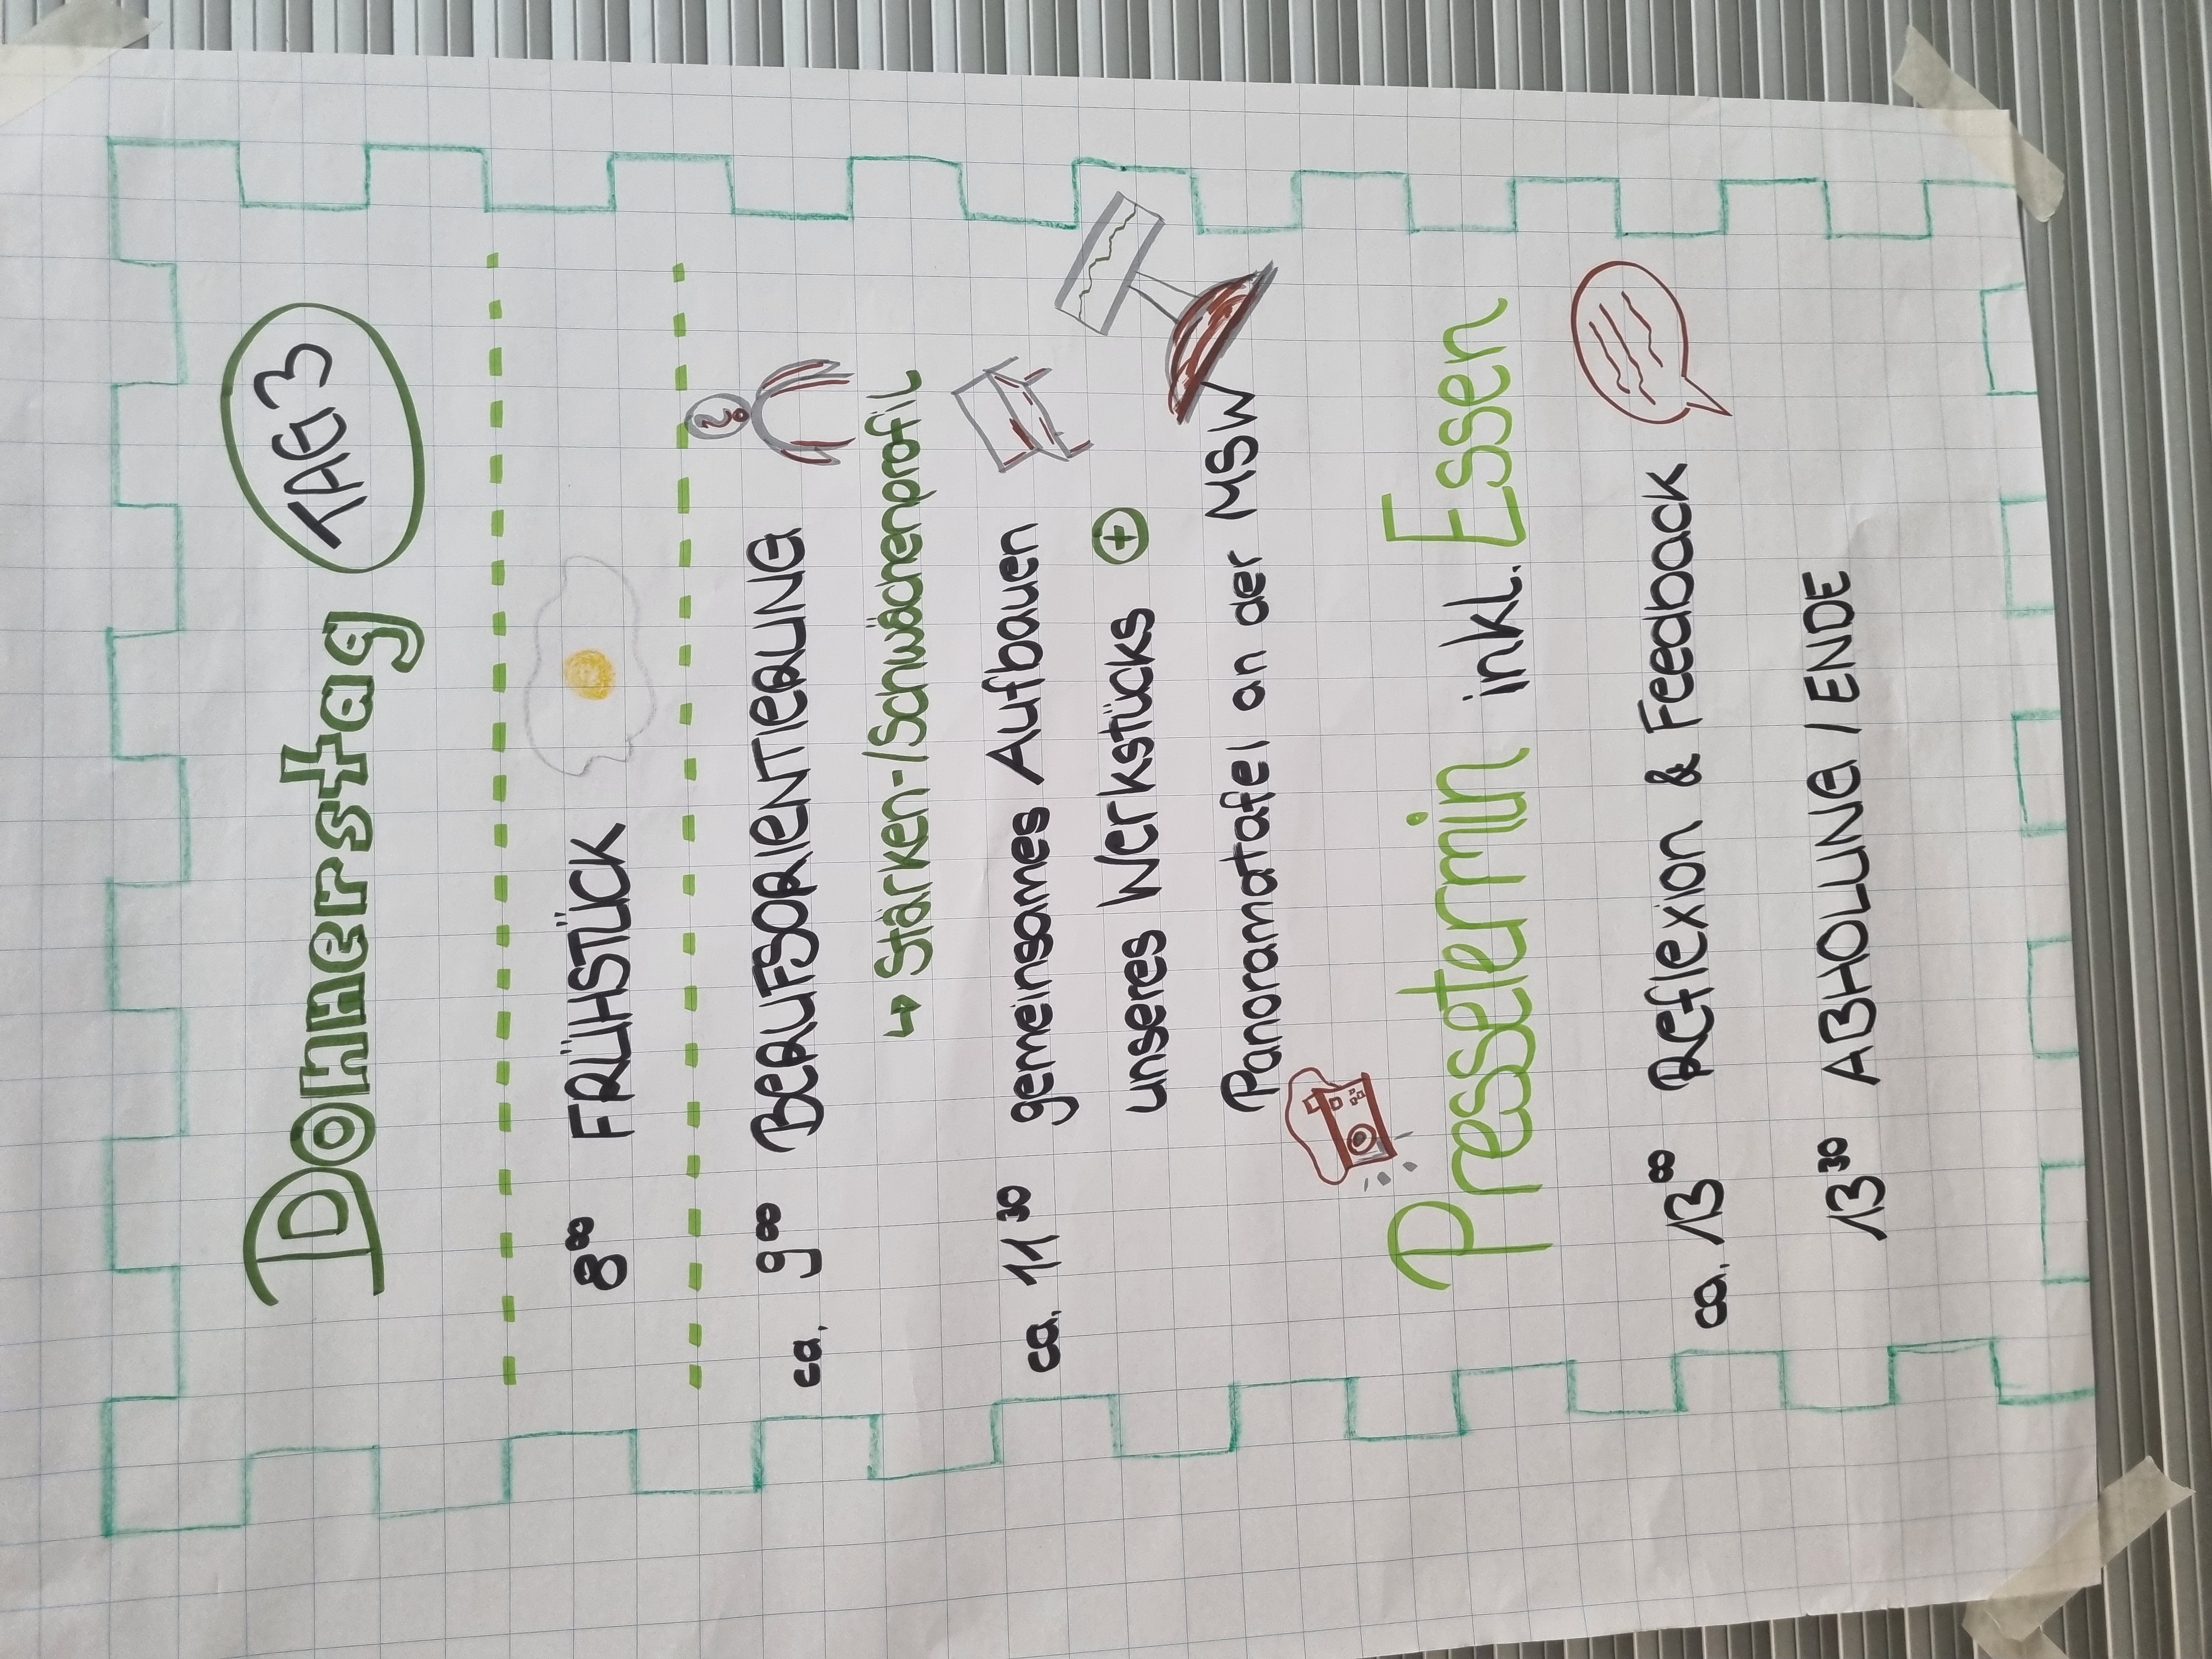 Donnerstag TAG 3
8⁰⁰ FRÜHSTÜCK
ca. 9⁰⁰ BERUFSORIENTIERUNG
↳ Stärken-/Schwächenprofil
ca. 11³⁰ gemeinsames Aufbauen
unseres Werkstücks ⊕
Panoramatafel an der MSW
Pressetermin inkl. Essen
ca. 13⁰⁰ Reflexion & Feedback
13³⁰ ABHOLUNG / ENDE